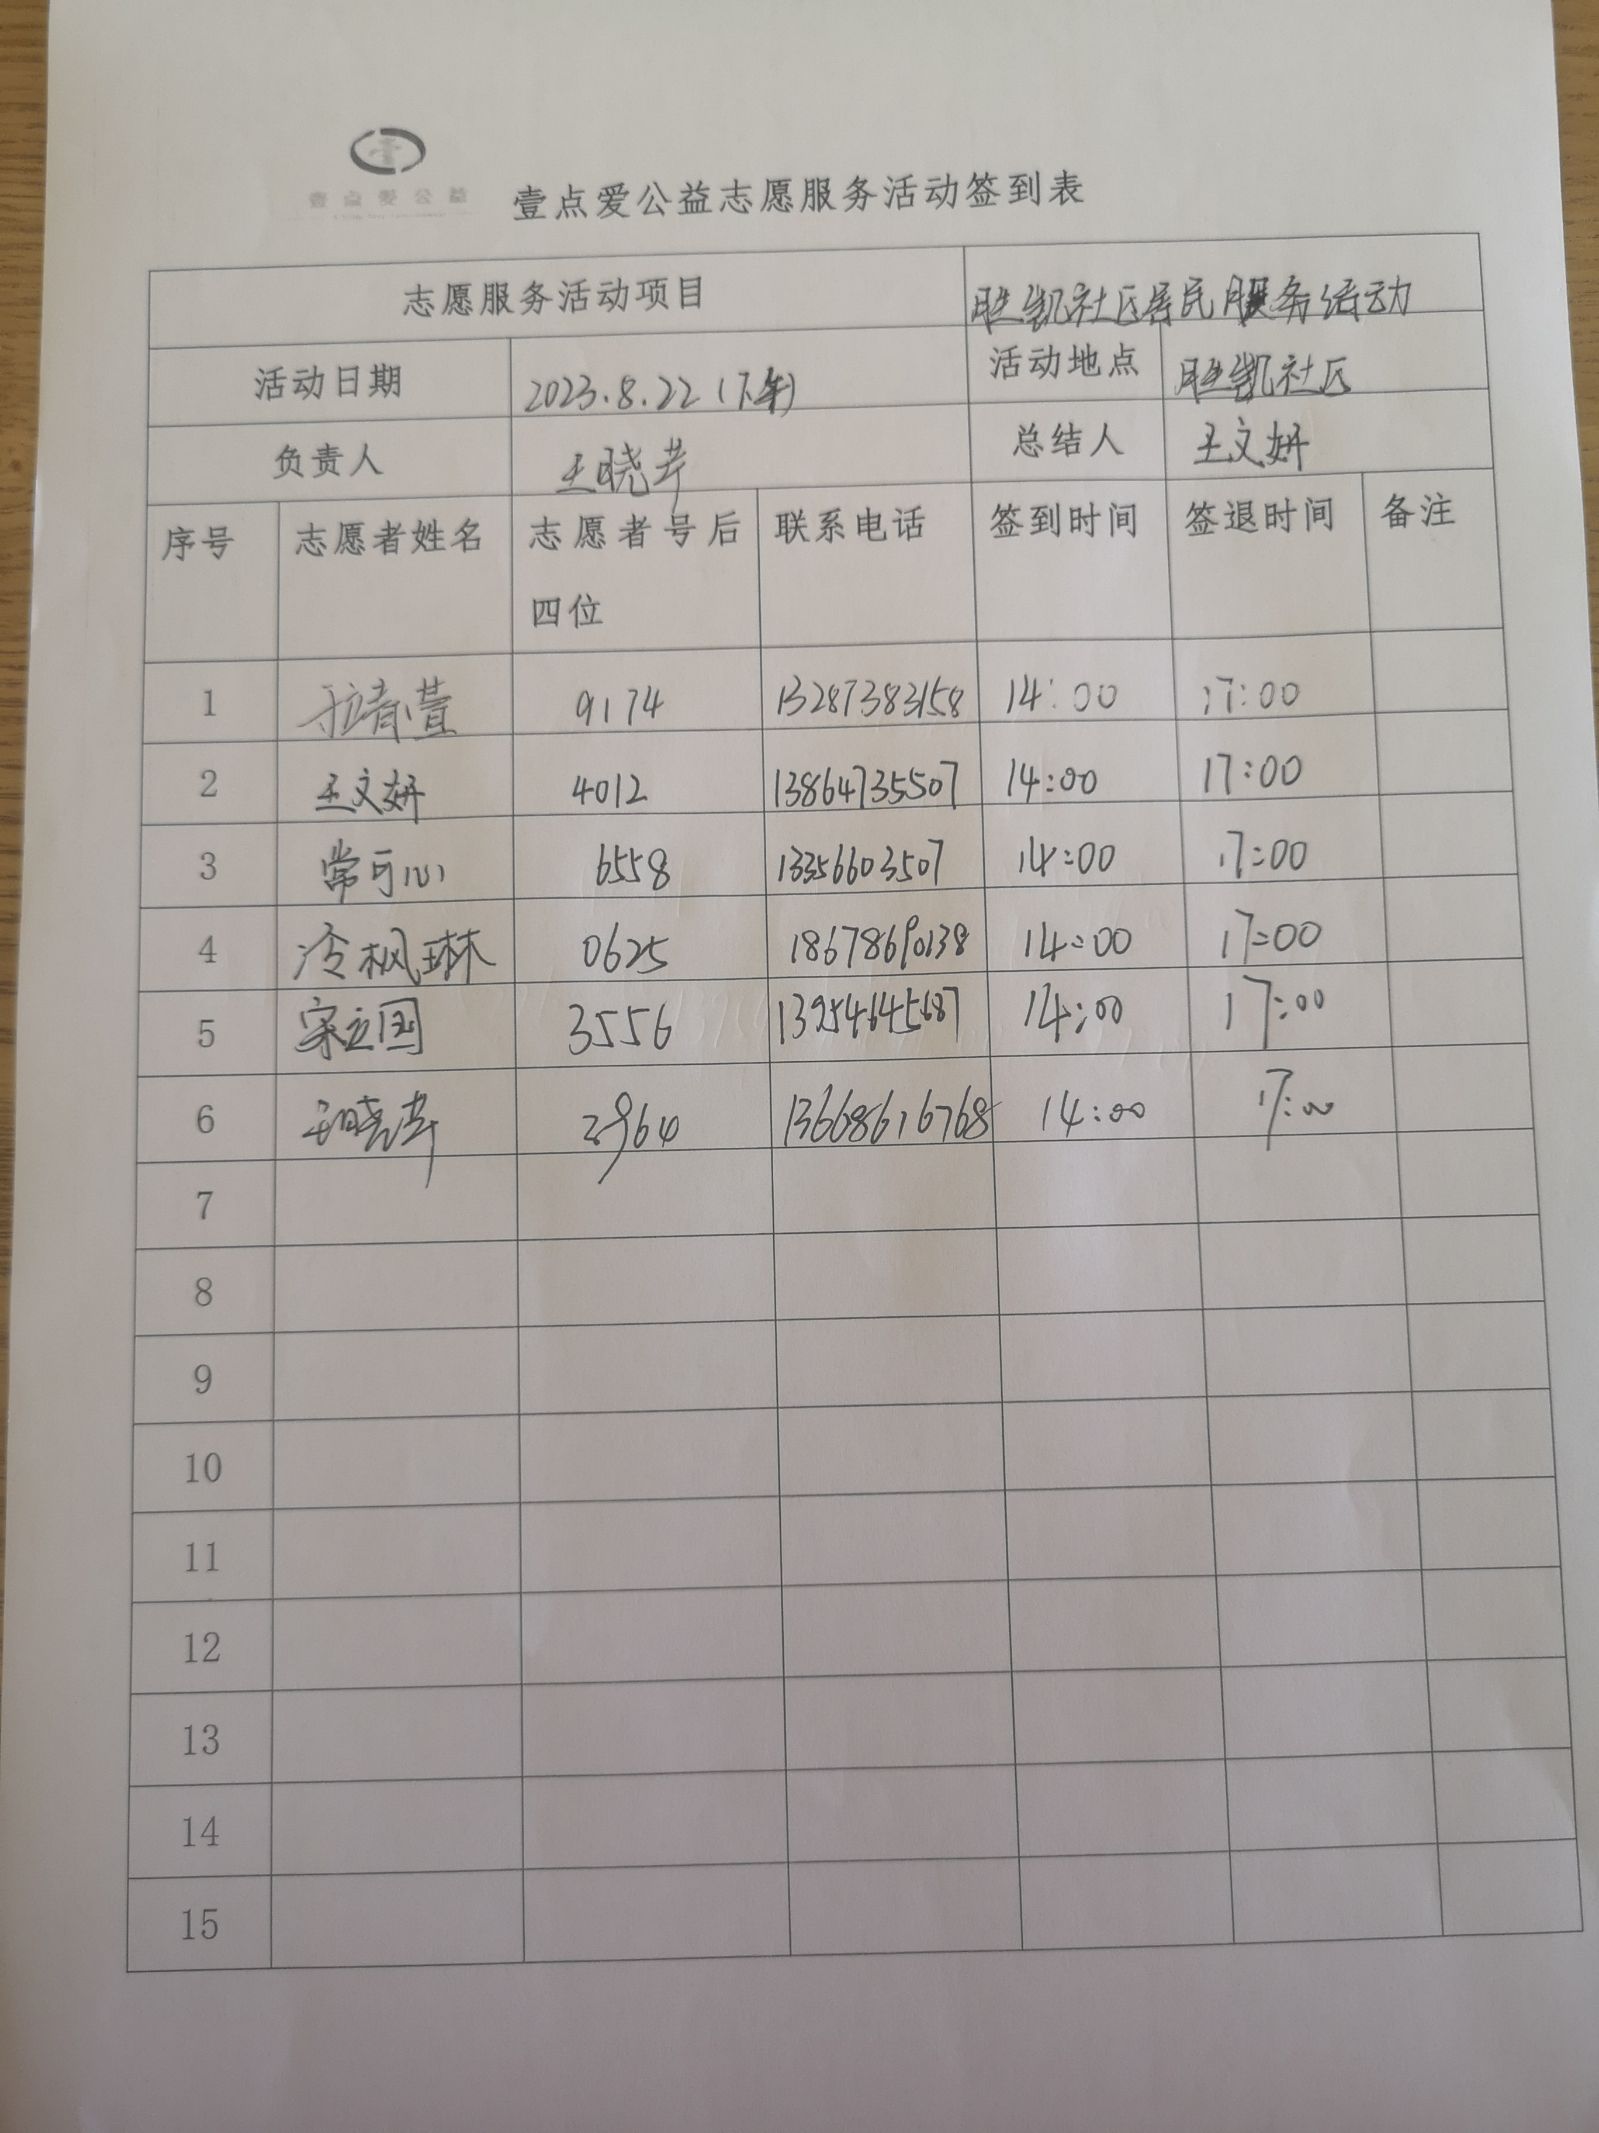 壹点爱公益
壹点爱公益志愿服务活动签到表
志愿服务活动项目 胜凯社区居民服务活动
活动日期 2023.8.22(下午) 活动地点 胜凯社区
负责人 王晓芹 总结人 王文妍
序号 志愿者姓名 志愿者号后四位 联系电话 签到时间 签退时间 备注
1 9174 13287383158 14:00 17:00
2 王文妍 4012 13864735507 14:00 17:00
3 常可心 6558 13356603507 14:00 17:00
4 冷枫琳 0625 18678690138 14:00 17:00
5 宋立国 3556 13954645687 14:00 17:00
6 王晓芹 2964 13668616768 14:00 17:00
7
8
9
10
11
12
13
14
15